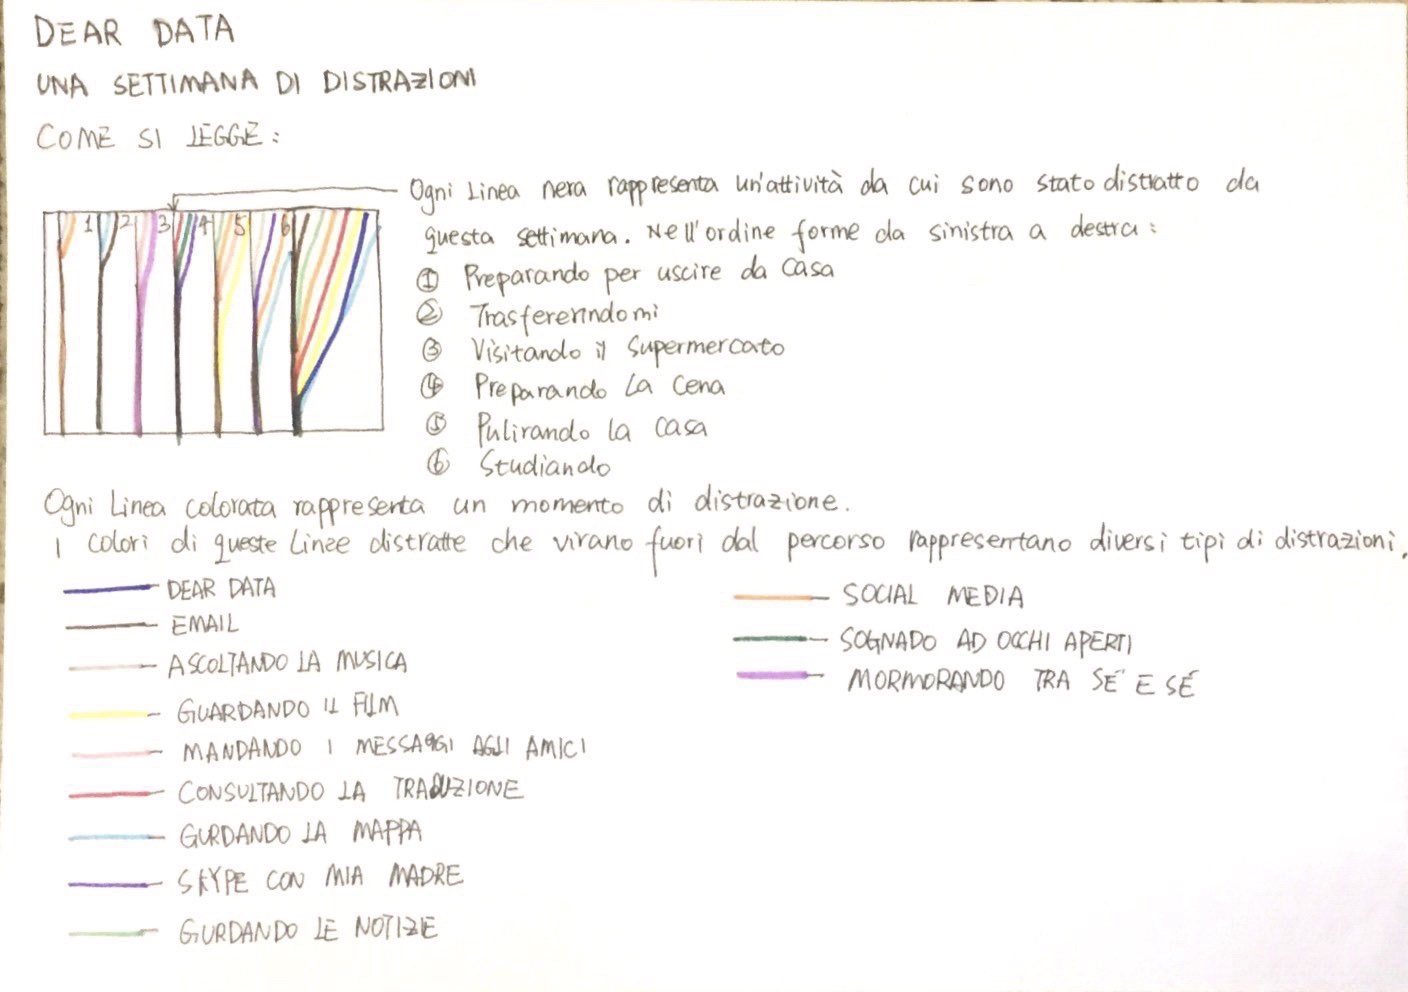 DEAR DATA
UNA SETTIMANA DI DISTRAZIONI
COME SI LEGGE:
Ogni Linea nera rappresenta un'attività da cui sono stato distratto da
questa settimana. Nell'ordine forme da sinistra a destra:
1 2 3 4 5 6
① Preparando per uscire da casa
② Trasfererindomi
③ Visitando il supermercato
④ Preparando La Cena
⑤ Pulirando la casa
⑥ Studiando
Ogni Linea colorata rappresenta un momento di distrazione.
I colori di queste Linee distratte che virano fuori dal percorso rappresentano diversi tipi di distrazioni.
DEAR DATA
EMAIL
ASCOLTANDO LA MUSICA
GUARDANDO IL FILM
MANDANDO I MESSAGGI AGLI AMICI
CONSULTANDO LA TRADUZIONE
GURDANDO LA MAPPA
SKYPE CON MIA MADRE
GURDANDO LE NOTIZIE
SOCIAL MEDIA
SOGNADO AD OCCHI APERTI
MORMORANDO TRA SÉ E SÉ